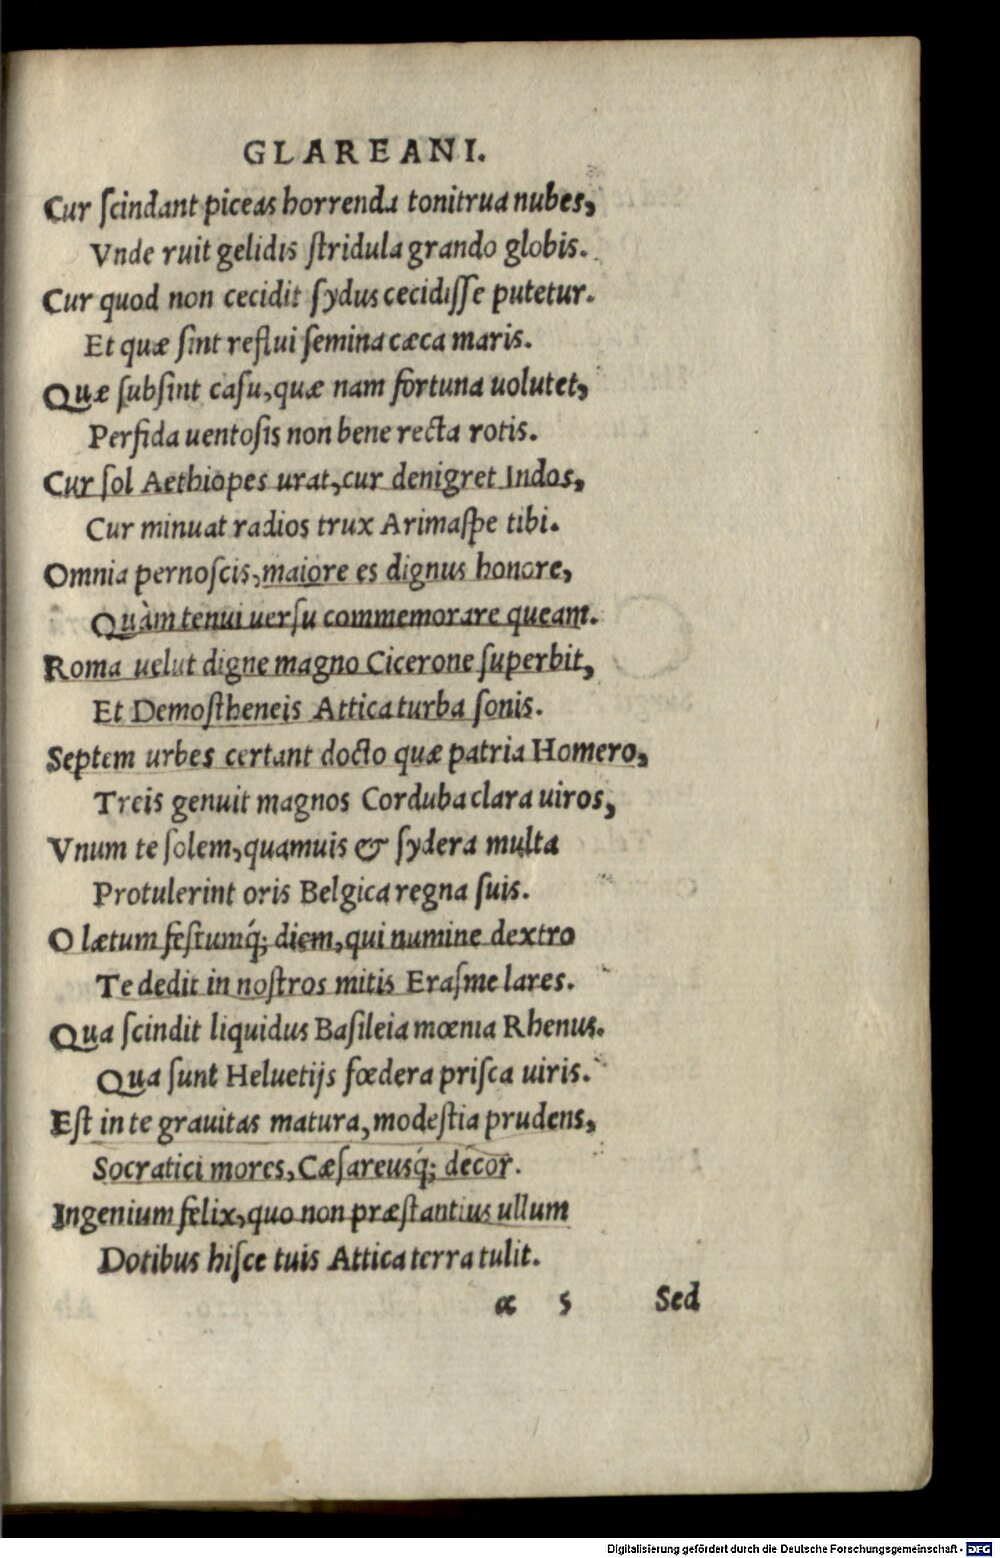 GLAREANI.
Cur ſcindant piceas horrenda tonitrua nubes,
Vnde ruit gelidis ſtridula grando globis.
Cur quod non cecidit ſydus cecidiſſe putetur.
Et quæ ſint reflui ſemina cæca maris.
Quæ ſubſint caſu, quæ nam fortuna uolutet,
Perfida uentoſis non bene recta rotis.
Cur ſol Aethiopes urat, cur denigret Indos,
Cur minuat radios trux Arimaſpe tibi.
Omnia pernoſcis, maiore es dignus honore,
Quàm tenui uerſu commemorare queam.
Roma uelut digne magno Cicerone ſuperbit,
Et Demoſtheneis Attica turba ſonis.
Septem urbes certant docto quæ patria Homero,
Treis genuit magnos Corduba clara uiros,
Vnum te ſolem, quamuis & ſydera multa
Protulerint oris Belgica regna ſuis.
O lætum feſtumq́; diem, qui numine dextro
Te dedit in noſtros mitis Eraſme lares.
Qua ſcindit liquidus Baſileia mœnia Rhenus.
Qua ſunt Heluetijs fœdera priſca uiris.
Eſt in te grauitas matura, modeſtia prudens,
Socratici mores, Cæſareusq́; decor.
Ingenium felix, quo non præſtantius ullum
Dotibus hiſce tuis Attica terra tulit.
α 5 Sed
Digitalisierung gefördert durch die Deutsche Forschungsgemeinschaft - DFG